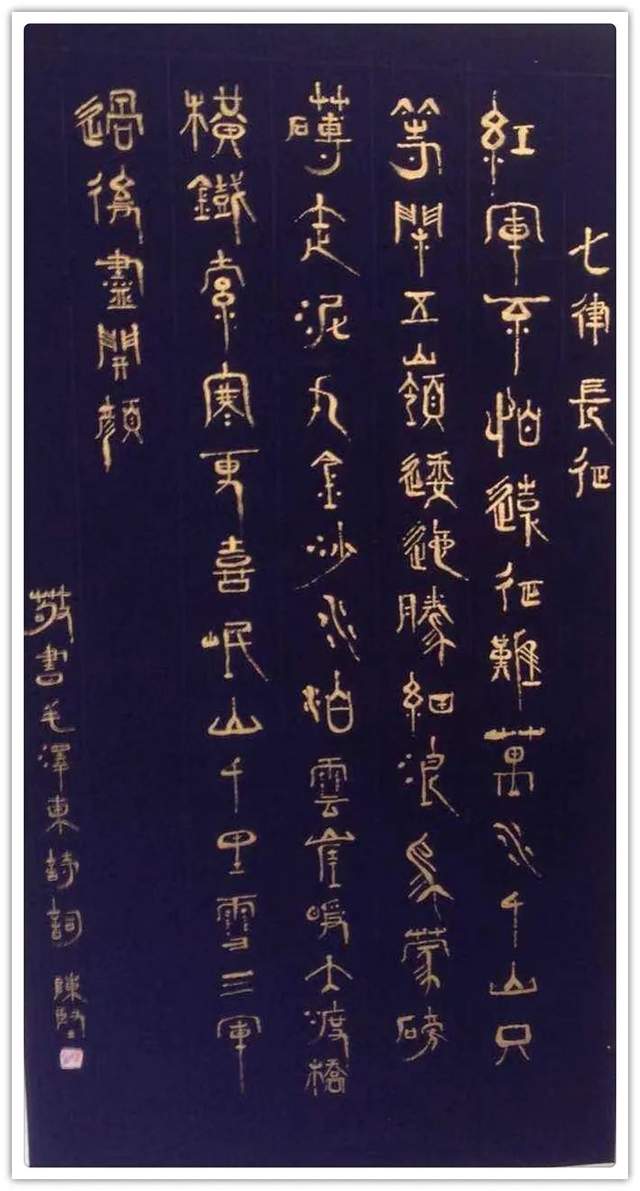 七律長征
紅軍不怕遠征難萬水千山只
等閑五嶺逶迤騰細浪烏蒙磅
礴走泥丸金沙水拍雲崖暖大渡橋
橫鐵索寒更喜岷山千里雪三軍
過後盡開顏
敬書毛澤東詩詞 陳